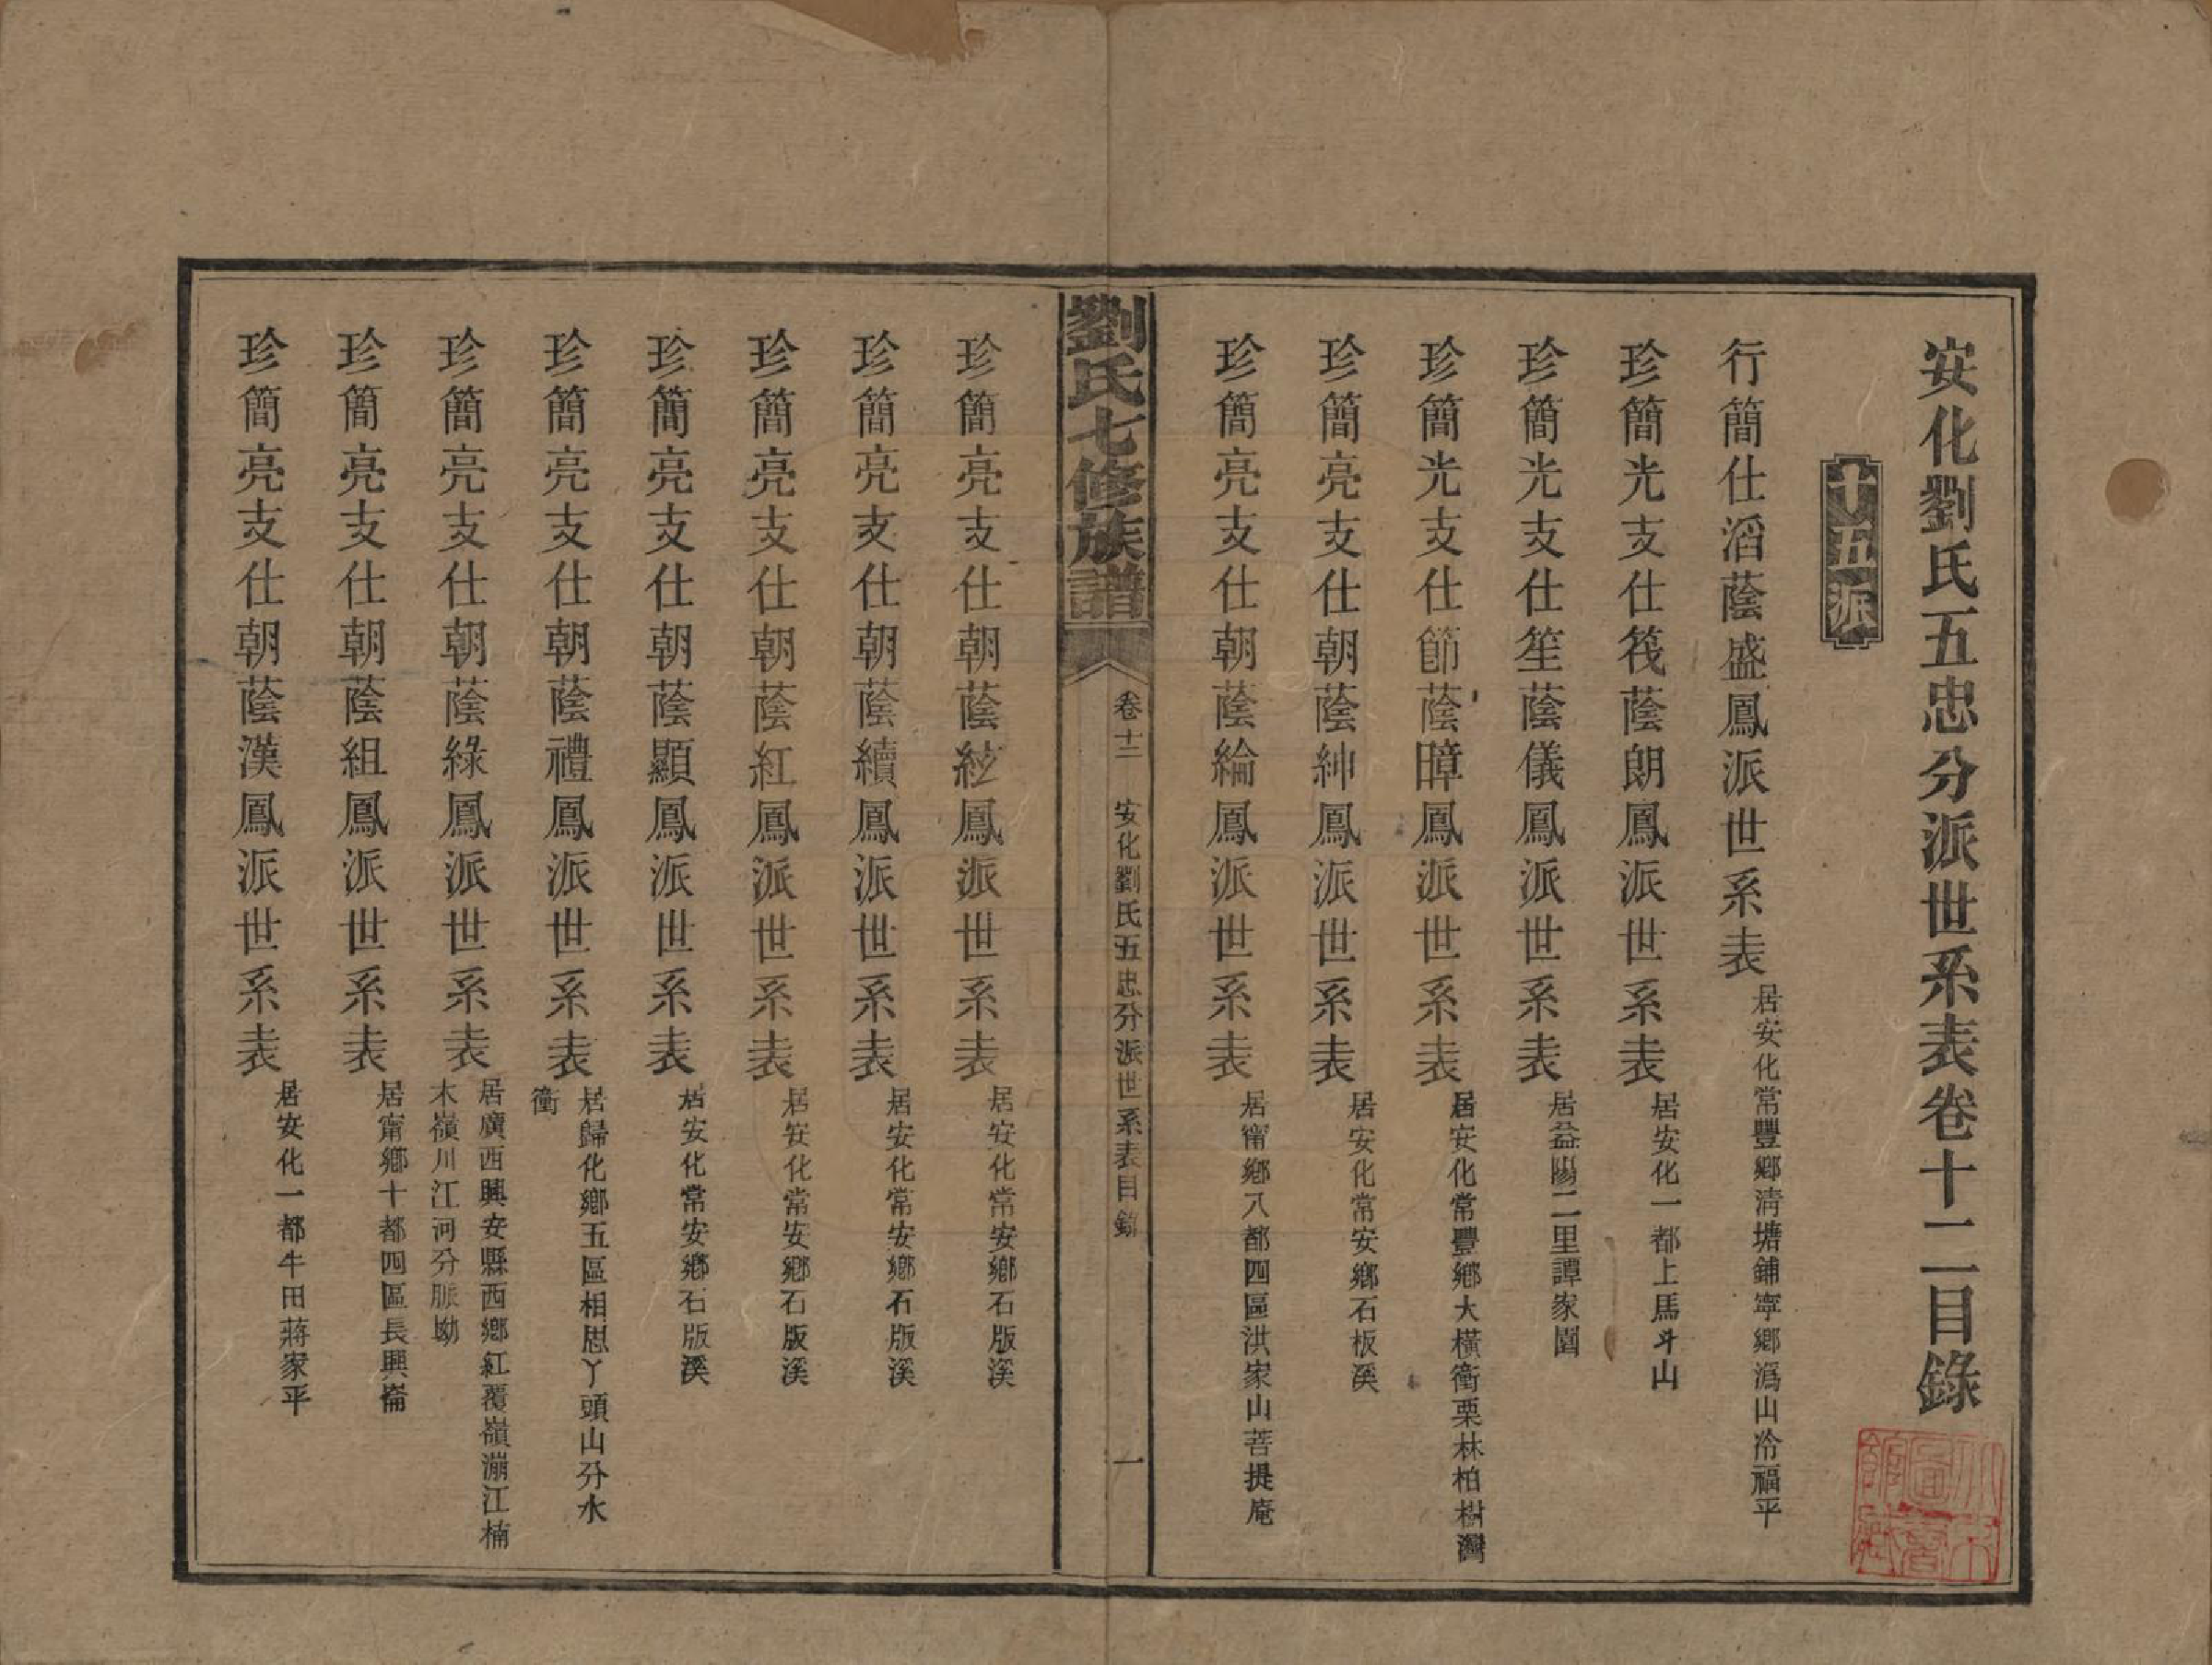 安化劉氏五忠分派世系表卷十二目錄
十五派
行簡仕滔蔭盛鳳派世系表 居安化常豐鄉清塘鋪寧鄉潙山冷福平
珍簡光支仕筏蔭朗鳳派世系表 居安化一都上馬斗山
珍簡光支仕笙蔭儀鳳派世系表 居益陽二里譚家園
珍簡光支仕節蔭暲鳳派世系表 居安化常豐鄉大橫衝栗林柏樹灣
珍簡亮支仕朝蔭紳鳳派世系表 居安化常安鄉石板溪
珍簡亮支仕朝蔭綸鳳派世系表 居甯鄉八都四區洪家山菩提庵
劉氏七修族譜
卷十二 安化劉氏五忠分派世系表目錄 一
珍簡亮支仕朝蔭紗鳳派世系表 居安化常安鄉石版溪
珍簡亮支仕朝蔭續鳳派世系表 居安化常安鄉石版溪
珍簡亮支仕朝蔭紅鳳派世系表 居安化常安鄉石版溪
珍簡亮支仕朝蔭顯鳳派世系表 居安化常安鄉石版溪
珍簡亮支仕朝蔭禮鳳派世系表 居歸化鄉五區相思丫頭山分水
衝
珍簡亮支仕朝蔭綠鳳派世系表 居廣西興安縣西鄉紅覆嶺漰江楠
木嶺川江河分脈坳
珍簡亮支仕朝蔭組鳳派世系表 居甯鄉十都四區長興崙
珍簡亮支仕朝蔭漢鳳派世系表 居安化一都牛田蔣家平